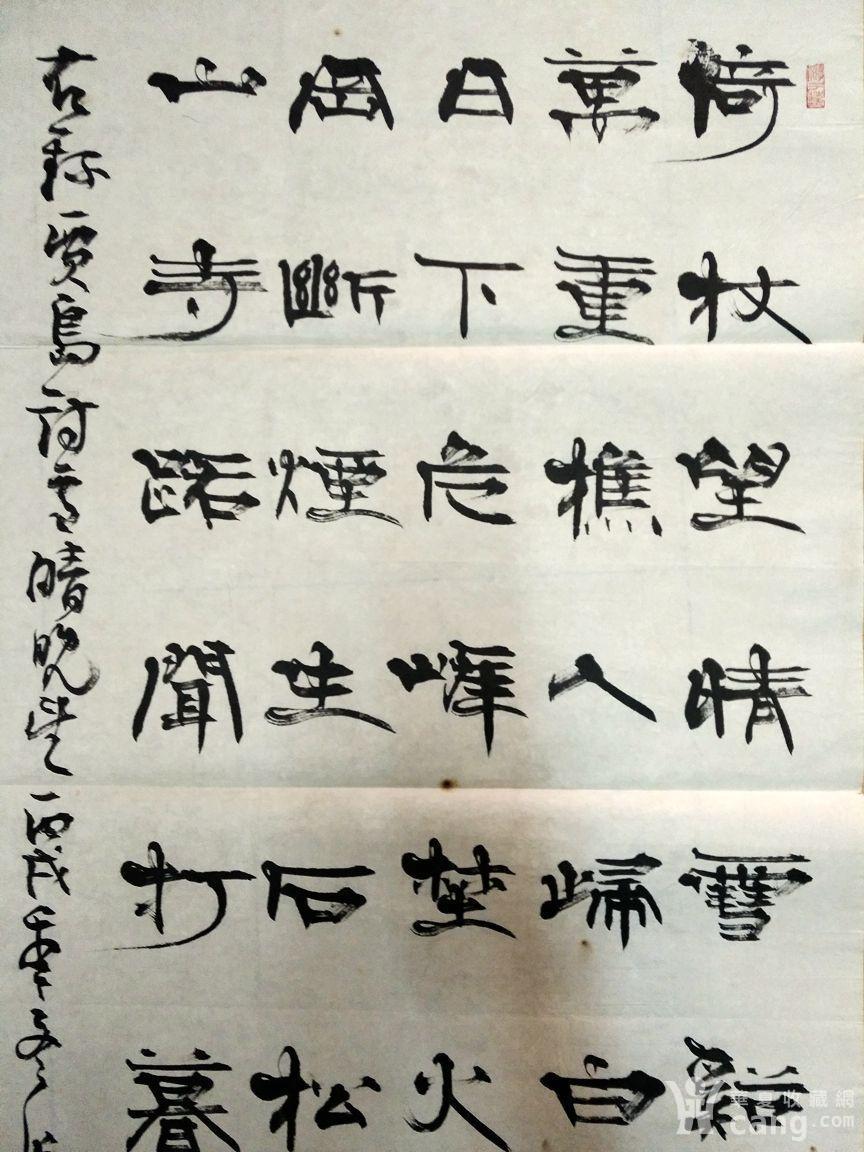 倚杖望晴雪谿
萬重樵人歸白
日下危峰埜火
岡斷煙生石松
山寺路聞打暮
右錄賈島詩雪晴晚望 丙戌年冬
華夏收藏網
cang.com